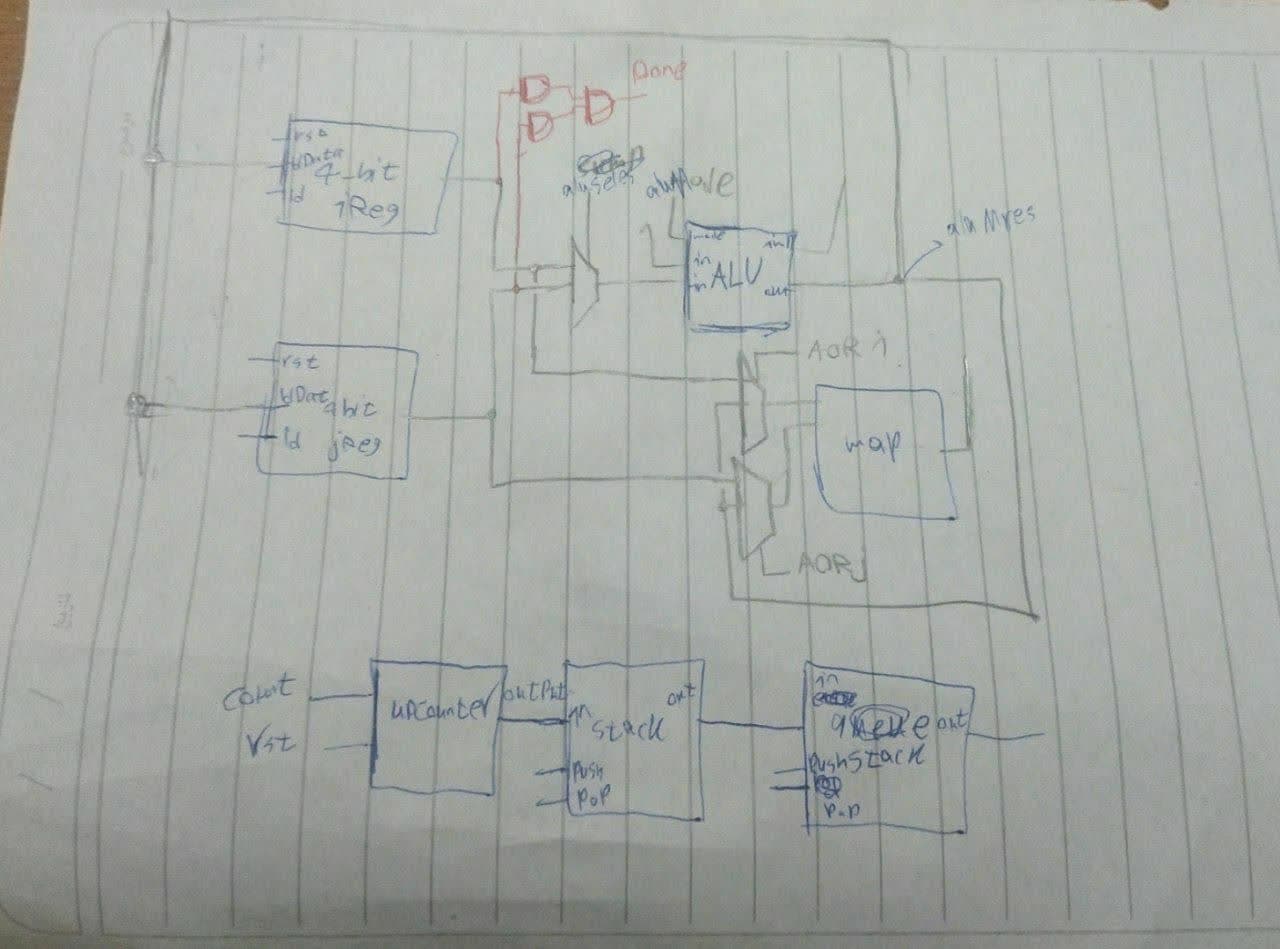 Done
rst
wData
4-bit
ld
iReg
alu
alu
mode
in
in
ALU
out
aluMres
rst
wData
4bit
ld
jReg
AOR i
map
AORj
Count
rst
upCounter
outPut
in
Stack
out
Push
PoP
in
queue
out
Push
Stack
PoP